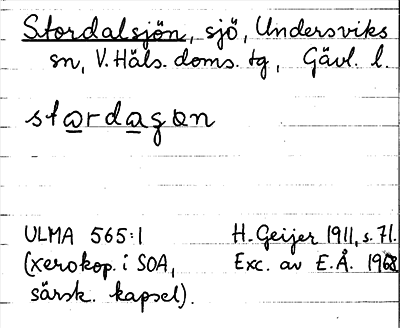 Stordalsjön, sjö, Undersviks
sn, V. Häls. doms. tg, Gävl. l.
stardagọn
ULMA 565:1 H. Geijer 1911, s. 71.
(xerokop. i SOA, Exc. av E.Å. 1968
särsk. kapsel).